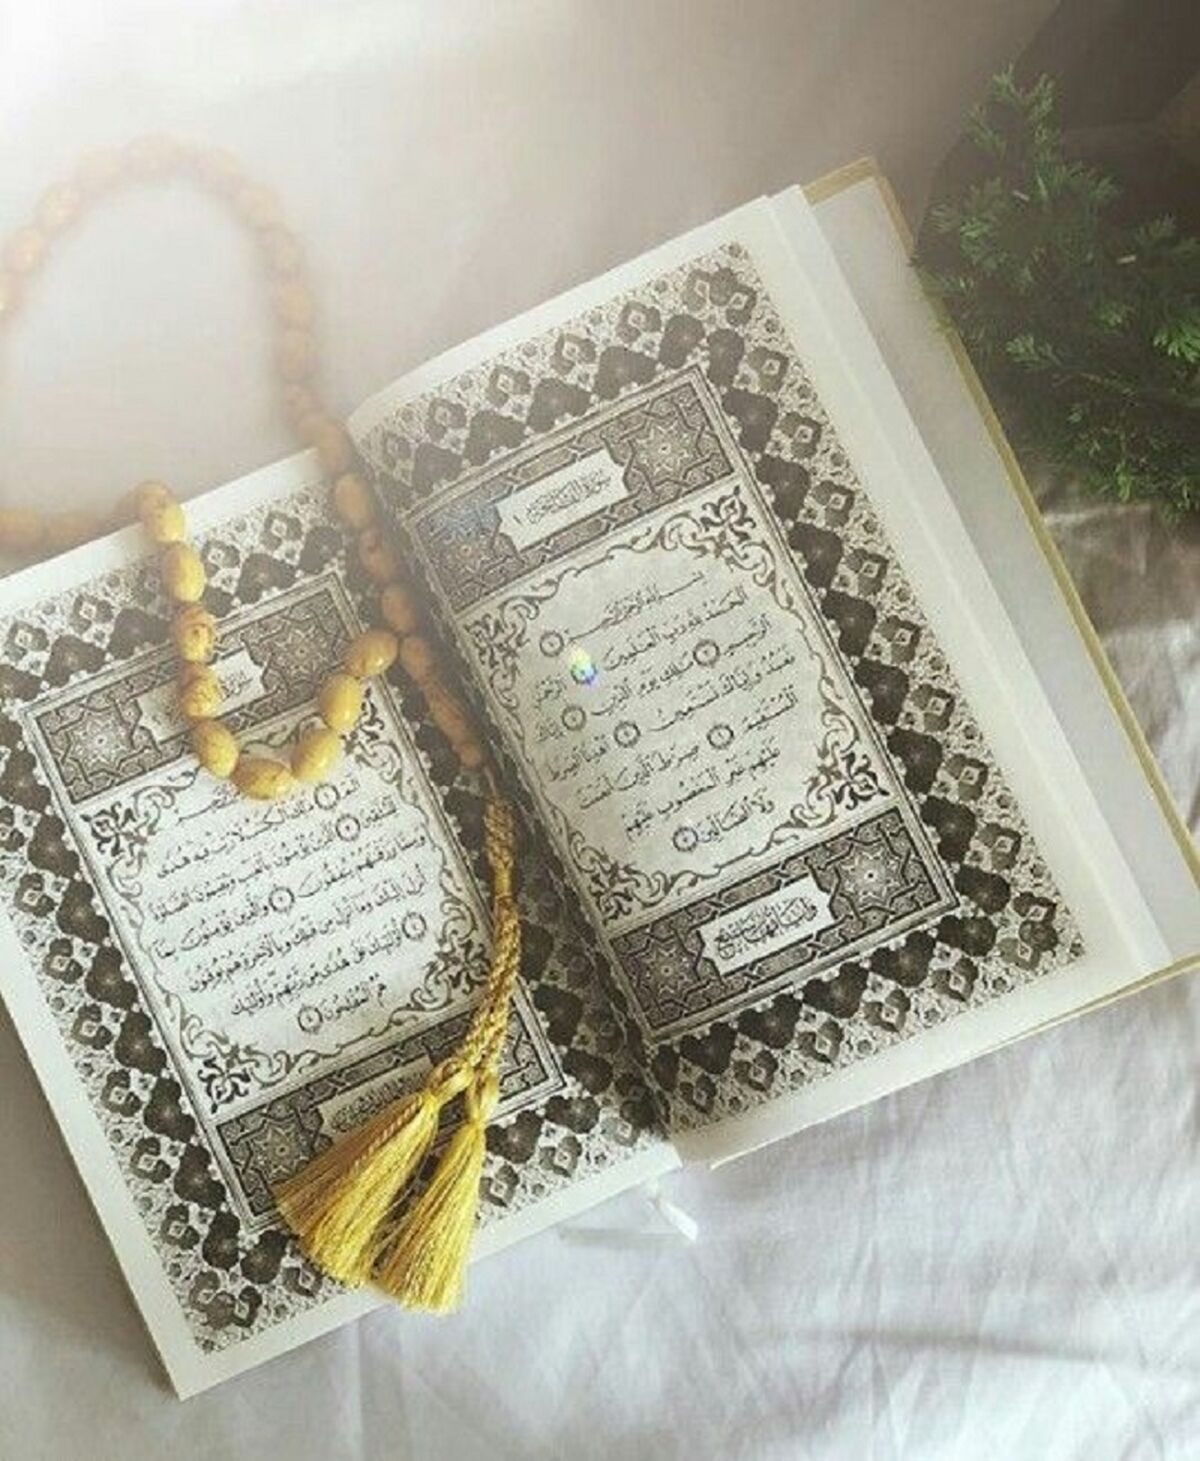 سُورَةُ الفَاتِحَةِ ١
بِسْمِ اللَّهِ الرَّحْمَٰنِ الرَّحِيمِ ١
الْحَمْدُ لِلَّهِ رَبِّ الْعَالَمِينَ ٢ الرَّحْمَٰنِ
الرَّحِيمِ ٣ مَالِكِ يَوْمِ الدِّينِ ٤ إِيَّاكَ
نَعْبُدُ وَإِيَّاكَ نَسْتَعِينُ ٥ اهْدِنَا الصِّرَاطَ
الْمُسْتَقِيمَ ٦ صِرَاطَ الَّذِينَ أَنْعَمْتَ
عَلَيْهِمْ غَيْرِ الْمَغْضُوبِ عَلَيْهِمْ
وَلَا الضَّالِّينَ ٧
الم ١ ذَٰلِكَ الْكِتَابُ لَا رَيْبَ فِيهِ هُدًى
لِلْمُتَّقِينَ ٢ الَّذِينَ يُؤْمِنُونَ بِالْغَيْبِ وَيُقِيمُونَ الصَّلَاةَ
وَمِمَّا رَزَقْنَاهُمْ يُنْفِقُونَ ٣ وَالَّذِينَ يُؤْمِنُونَ بِمَا
أُنْزِلَ إِلَيْكَ وَمَا أُنْزِلَ مِنْ قَبْلِكَ وَبِالْآخِرَةِ هُمْ يُوقِنُونَ
٤ أُولَٰئِكَ عَلَىٰ هُدًى مِنْ رَبِّهِمْ وَأُولَٰئِكَ
هُمُ الْمُفْلِحُونَ ٥